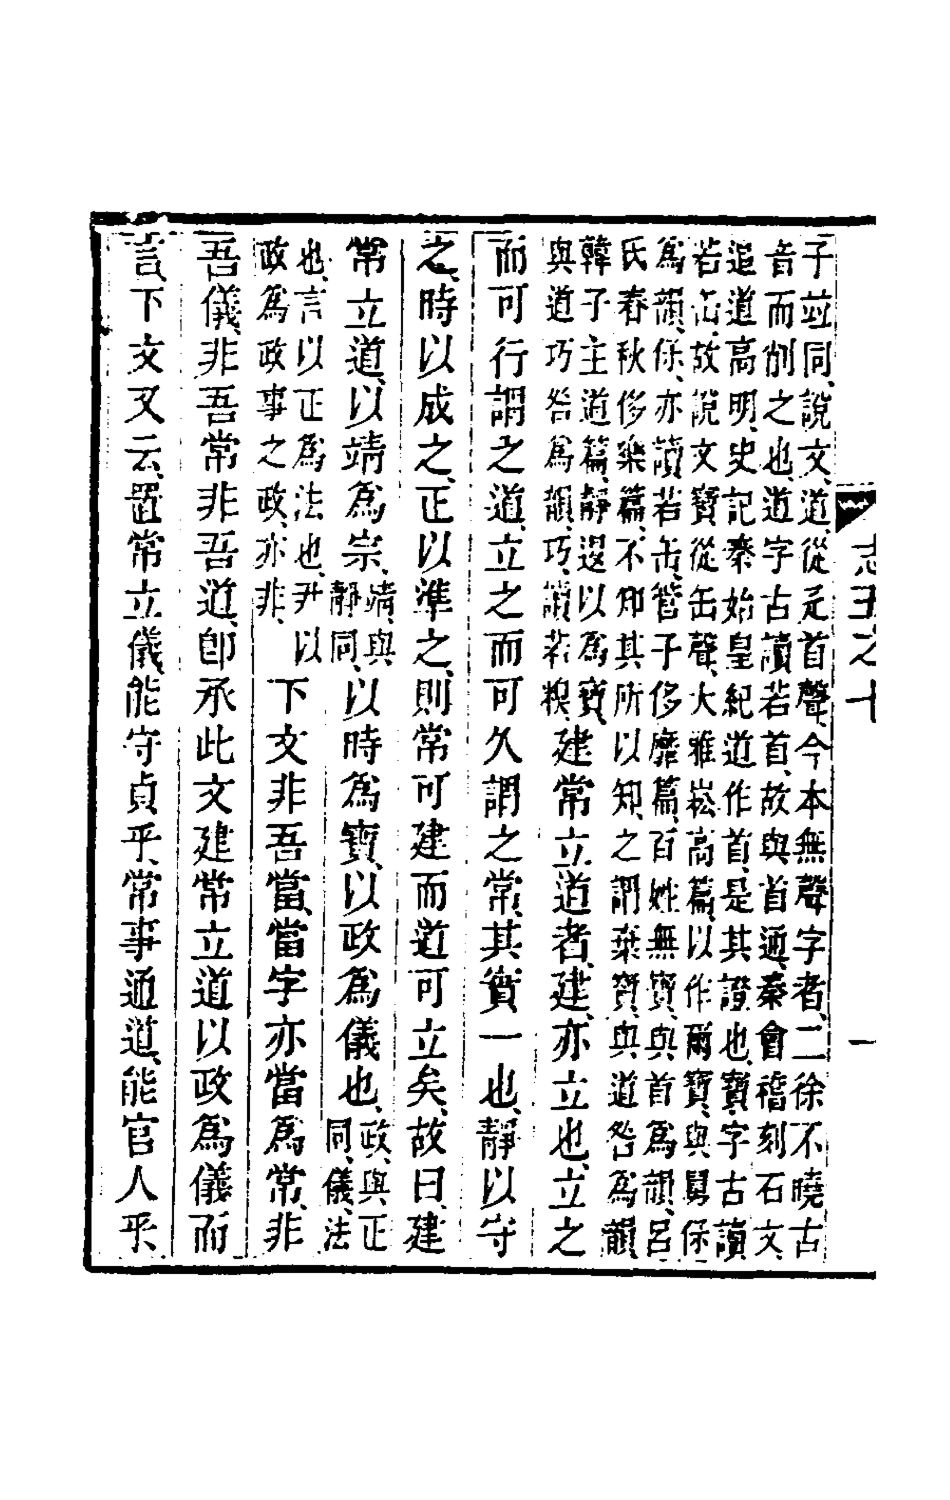 志五之十　一
子竝同、說文、道、從辵首聲、今本無聲字者、二徐不曉古
音而削之也、道字古讀若首、故與首通、秦會稽刻石文、
追道高明、史記秦始皇紀道作首、是其證也、寶字古讀
若缶、故說文寶從缶聲、大雅崧高篇、以作爾寶、與舅保
爲韻、保、亦讀若缶、管子侈靡篇、百姓無寶、與首爲韻、呂
氏春秋侈樂篇、不知其所以知、之謂棄寶、與道咎爲韻、
韓子主道篇、靜退以爲寶、
與道巧咎爲韻、巧、讀若糗、
建常立道者、建、亦立也、立之
而可行謂之道、立之而可久謂之常、其實一也、靜以守
之、時以成之、正以準之、則常可建而道可立矣、故曰、建
常立道、以靖爲宗、
靖、與
靜同、
以時爲寶、以政爲儀也、
政、與正
同、儀、法
也、言以正爲法也、尹以
政爲政事之政、亦非、
下文非吾當、當字亦當爲常、非
吾儀、非吾常非吾道、卽承此文建常立道以政爲儀而
言、下文又云、置常立儀、能守貞乎、常事通道、能官人乎、